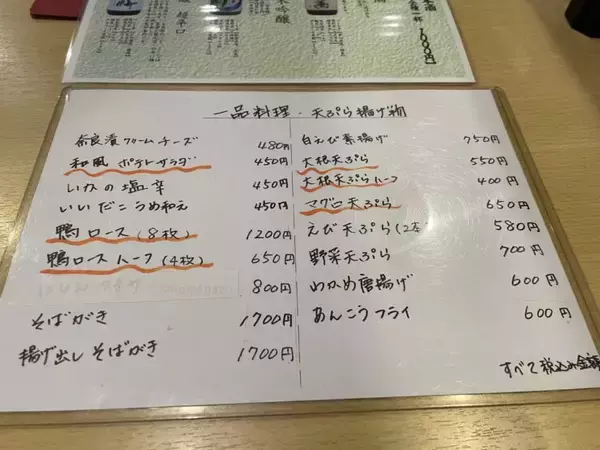 超辛口
吟醸
1000円
一品料理・天ぷら揚げ物
奈良漬クリームチーズ 480円
和風ポテトサラダ 450円
いかの塩辛 450円
いいだこうめ和え 450円
鴨ロース(8枚) 1200円
鴨ロースハーフ(4枚) 650円
800円
そばがき 1700円
揚げ出しそばがき 1700円
白えび素揚げ 750円
大根天ぷら 550円
大根天ぷらハーフ 400円
マグロ天ぷら 650円
えび天ぷら(2本) 580円
野菜天ぷら 700円
わかめ唐揚げ 600円
あんこうフライ 600円
すべて税込み金額